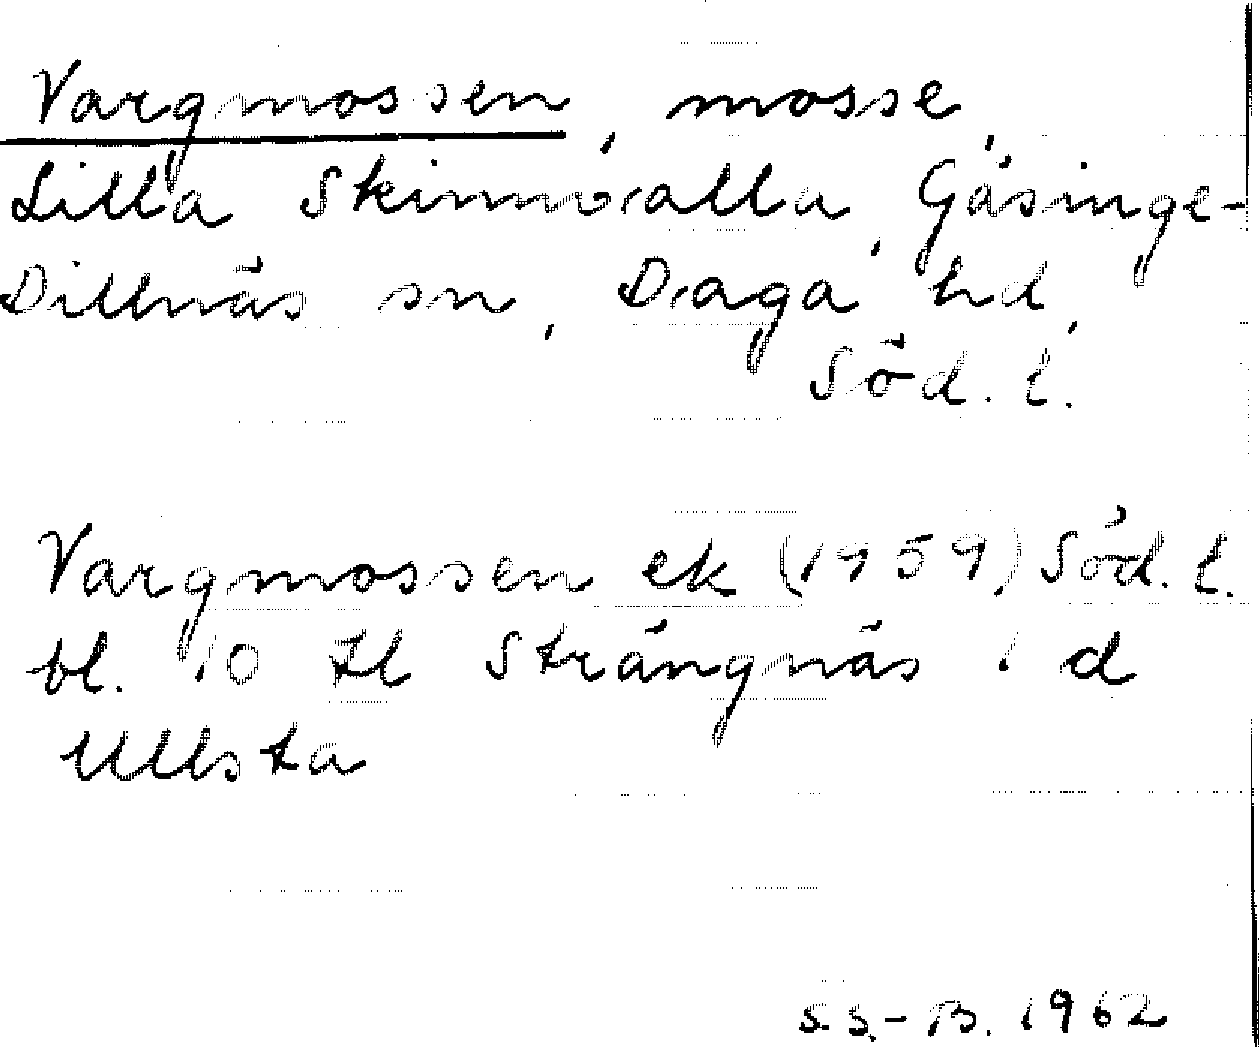 Vargmossen, mosse,
Lilla Skinnvalla, Gåsinge-
Dillnäs sn, Daga hd,
Söd. l.
Vargmossen ek (1959) Söd. l.
bl. 10 tl Strängnäs 1 d
Ullsta
S.S.-B. 1962